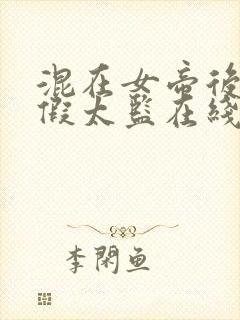 混在女帝後
假太監在綫
李閑魚